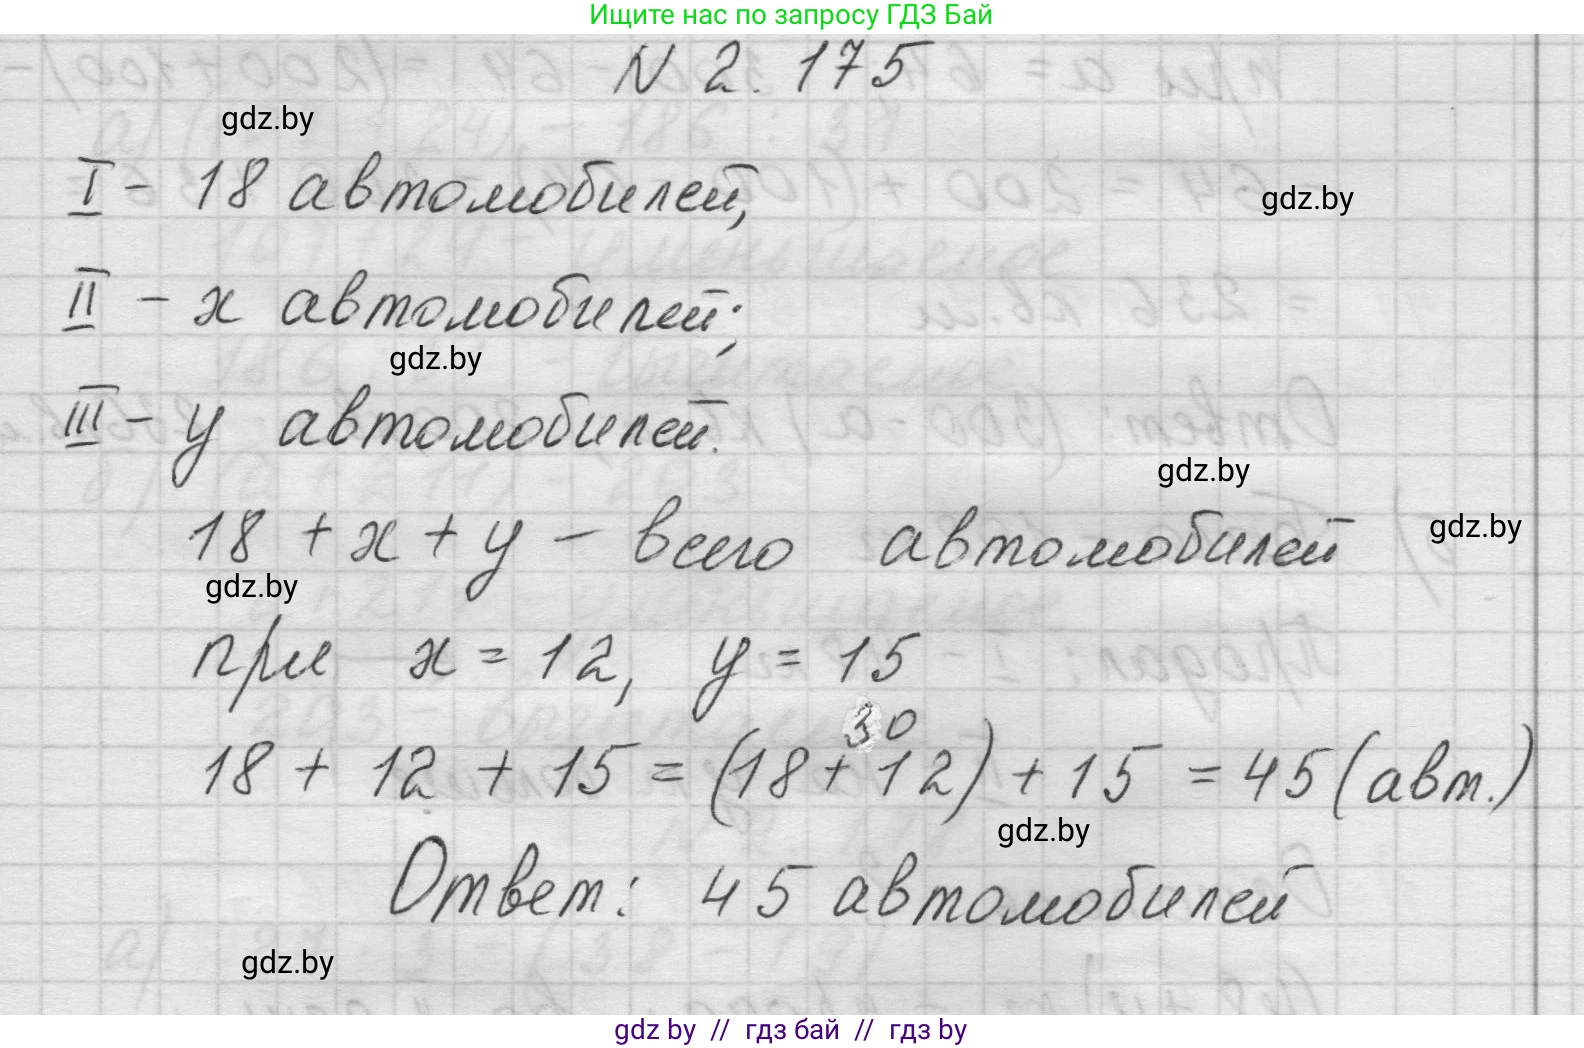 Ищите нас по запросу ГДЗ Бай
N 2. 175
gdz.by
I - 18 автомобилей,
gdz.by
II - х автомобилей;
gdz.by
III - у автомобилей.
gdz.by
18 + х + у - всего автомобилей
gdz.by
gdz.by
при х = 12, у = 15
30
18 + 12 + 15 = (18 + 12) + 15 = 45 (авт.)
gdz.by
Ответ: 45 автомобилей
gdz.by
gdz by // гдз бай // гдз by